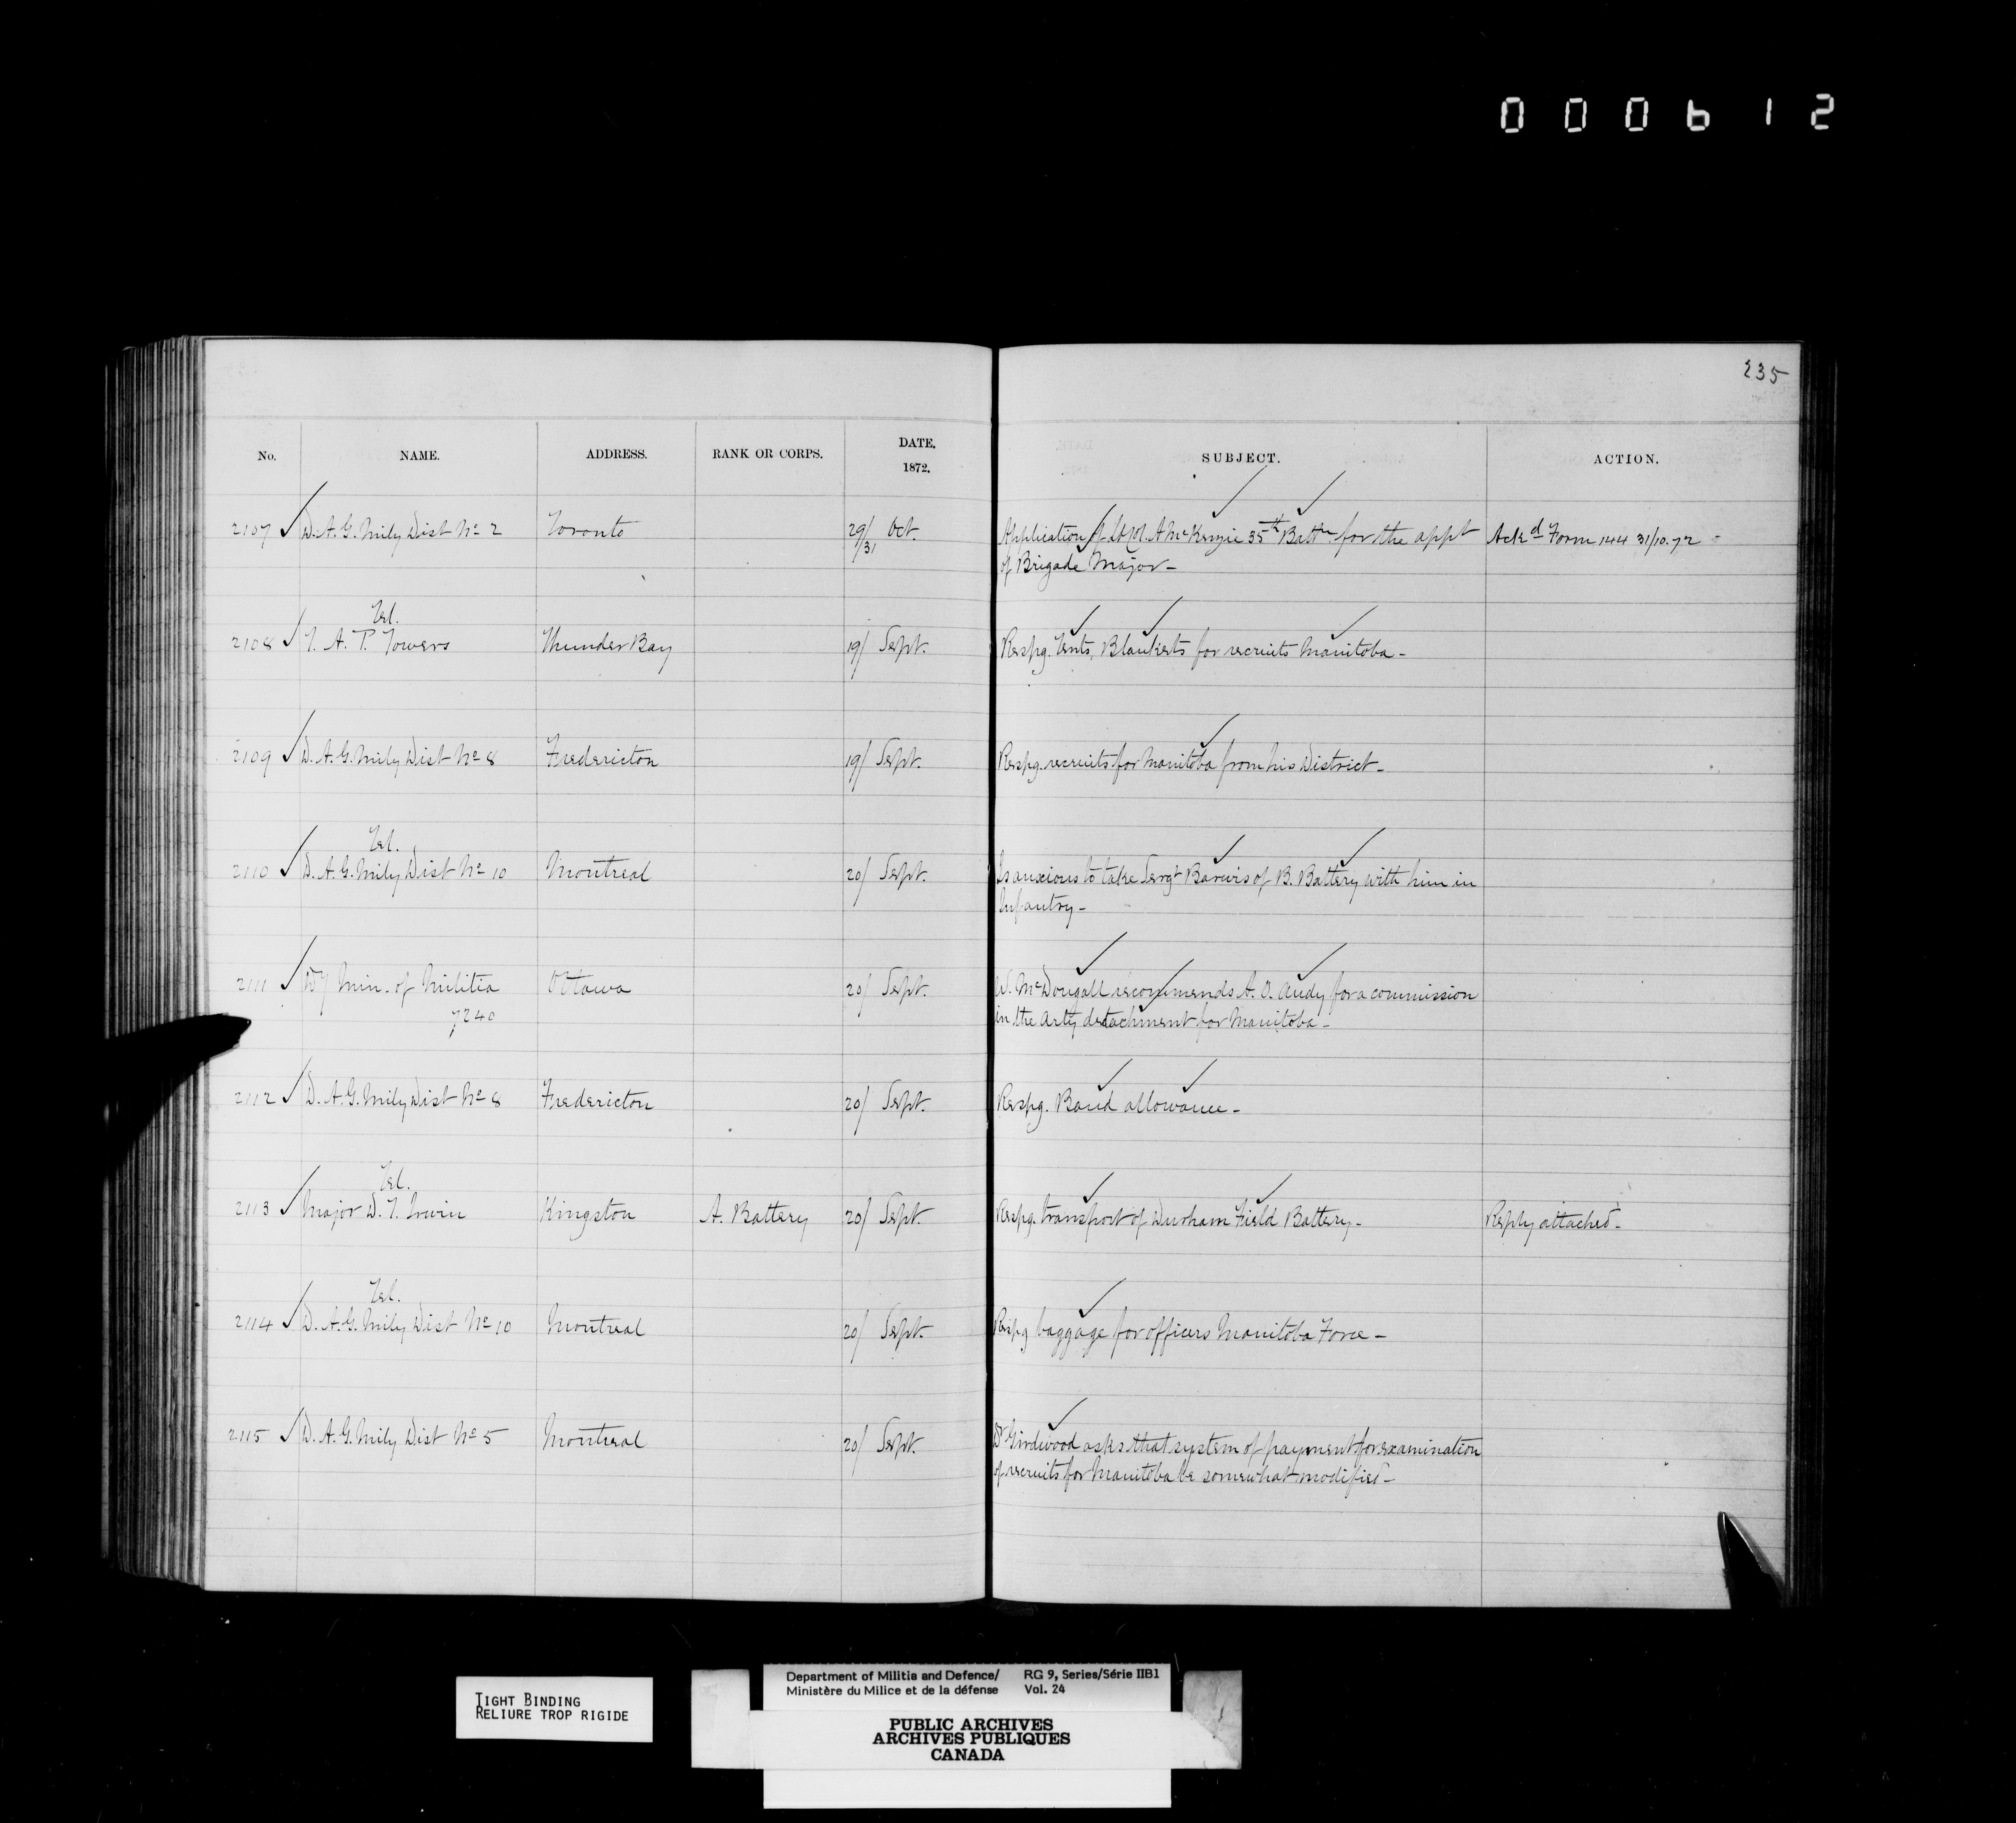 000612
235
No. NAME. ADDRESS. RANK OR CORPS. DATE. 1872. SUBJECT. ACTION.
2107 D. A. G. Mily Dist No 2 Toronto 29/31 Oct. Application of Lt Col. A McKenzie 35th Battn for the appt Ackd Form 144 31/10.72
of Brigade Major -
Tel.
2108 T. A. P. Towers Thunder Bay 19/ Sept. Respg. Tents, Blankets for recruits Manitoba -
2109 D. A. G. Mily Dist No 8 Fredericton 19/ Sept. Respg. recruits for Manitoba from his District -
Tel.
2110 D. A. G. Mily Dist No 10 Montreal 20/ Sept. Is anxious to take Sergt Barwis of B. Battery with him in
Infantry -
2111 Dy Min. of Militia Ottawa 20/ Sept. W. McDougall recommends A. O. Audy for a commission
7240 in the Arty detachment for Manitoba -
2112 D. A. G. Mily Dist No 8 Fredericton 20/ Sept. Respg. Band allowance -
Tel.
2113 Major D. T. Irwin Kingston A. Battery 20/ Sept. Respg. transport of Durham Field Battery - Reply attached -
Tel.
2114 D. A. G. Mily Dist No 10 Montreal 20/ Sept. Respg baggage for officers Manitoba Force -
2115 D. A. G. Mily Dist No 5 Montreal 20/ Sept. Dr Girdwood asks that system of payment for examination
of recruits for Manitoba be somewhat modified -
TIGHT BINDING
RELIURE TROP RIGIDE
Department of Militia and Defence/ RG 9, Series/Série IIB1
Ministère du Milice et de la défense Vol. 24
PUBLIC ARCHIVES
ARCHIVES PUBLIQUES
CANADA